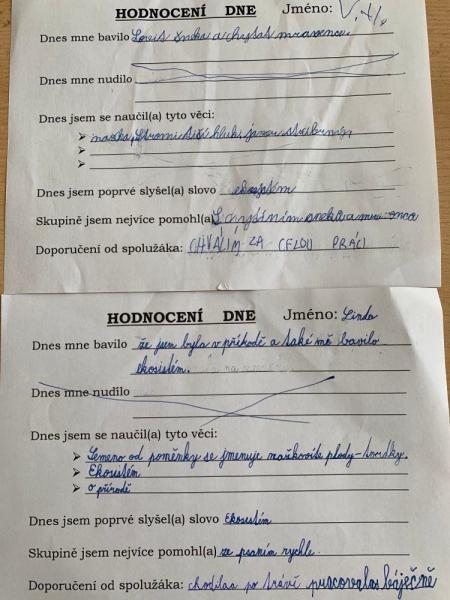 HODNOCENÍ DNE Jméno: V. H.
Dnes mne bavilo Lovit šneka a chytat mravence
Dnes mne nudilo
Dnes jsem se naučil(a) tyto věci:
➤
➤
➤
Dnes jsem poprvé slyšel(a) slovo ekosystém
Skupině jsem nejvíce pomohl(a) šneka a
Doporučení od spolužáka: CHVALÍM ZA CELOU PRÁCI
HODNOCENÍ DNE Jméno: Linda
Dnes mne bavilo že jsem byla v příkodě a také mě bavilo
ekosistém.
Dnes mne nudilo
Dnes jsem se naučil(a) tyto věci:
➤ Semeno od poměnky se jmenuje plody-tvrdky.
➤ Ekosistém
➤ o přírodě
Dnes jsem poprvé slyšel(a) slovo Ekosistém
Skupině jsem nejvíce pomohl(a) ze psaním rychle.
Doporučení od spolužáka: chodilas po trávě pracovalas báječně